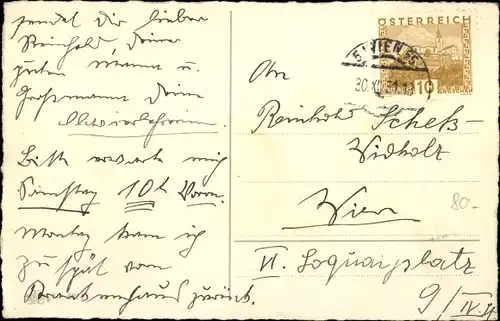 sendet dir lieber
Reinhold, deine
guten Mama u.
Grossmama deine
Bitte erwarte mich
Samstag 10h Vorm.
Montag kam ich
zu spät vom
Krankenhaus zurück.
ÖSTERREICH
WIEN
30.XII.31
10
GROSCHEN
An
Reinhold Scheß-
Widholz
Wien
80.-
VI. Loquaiplatz
9/IV.